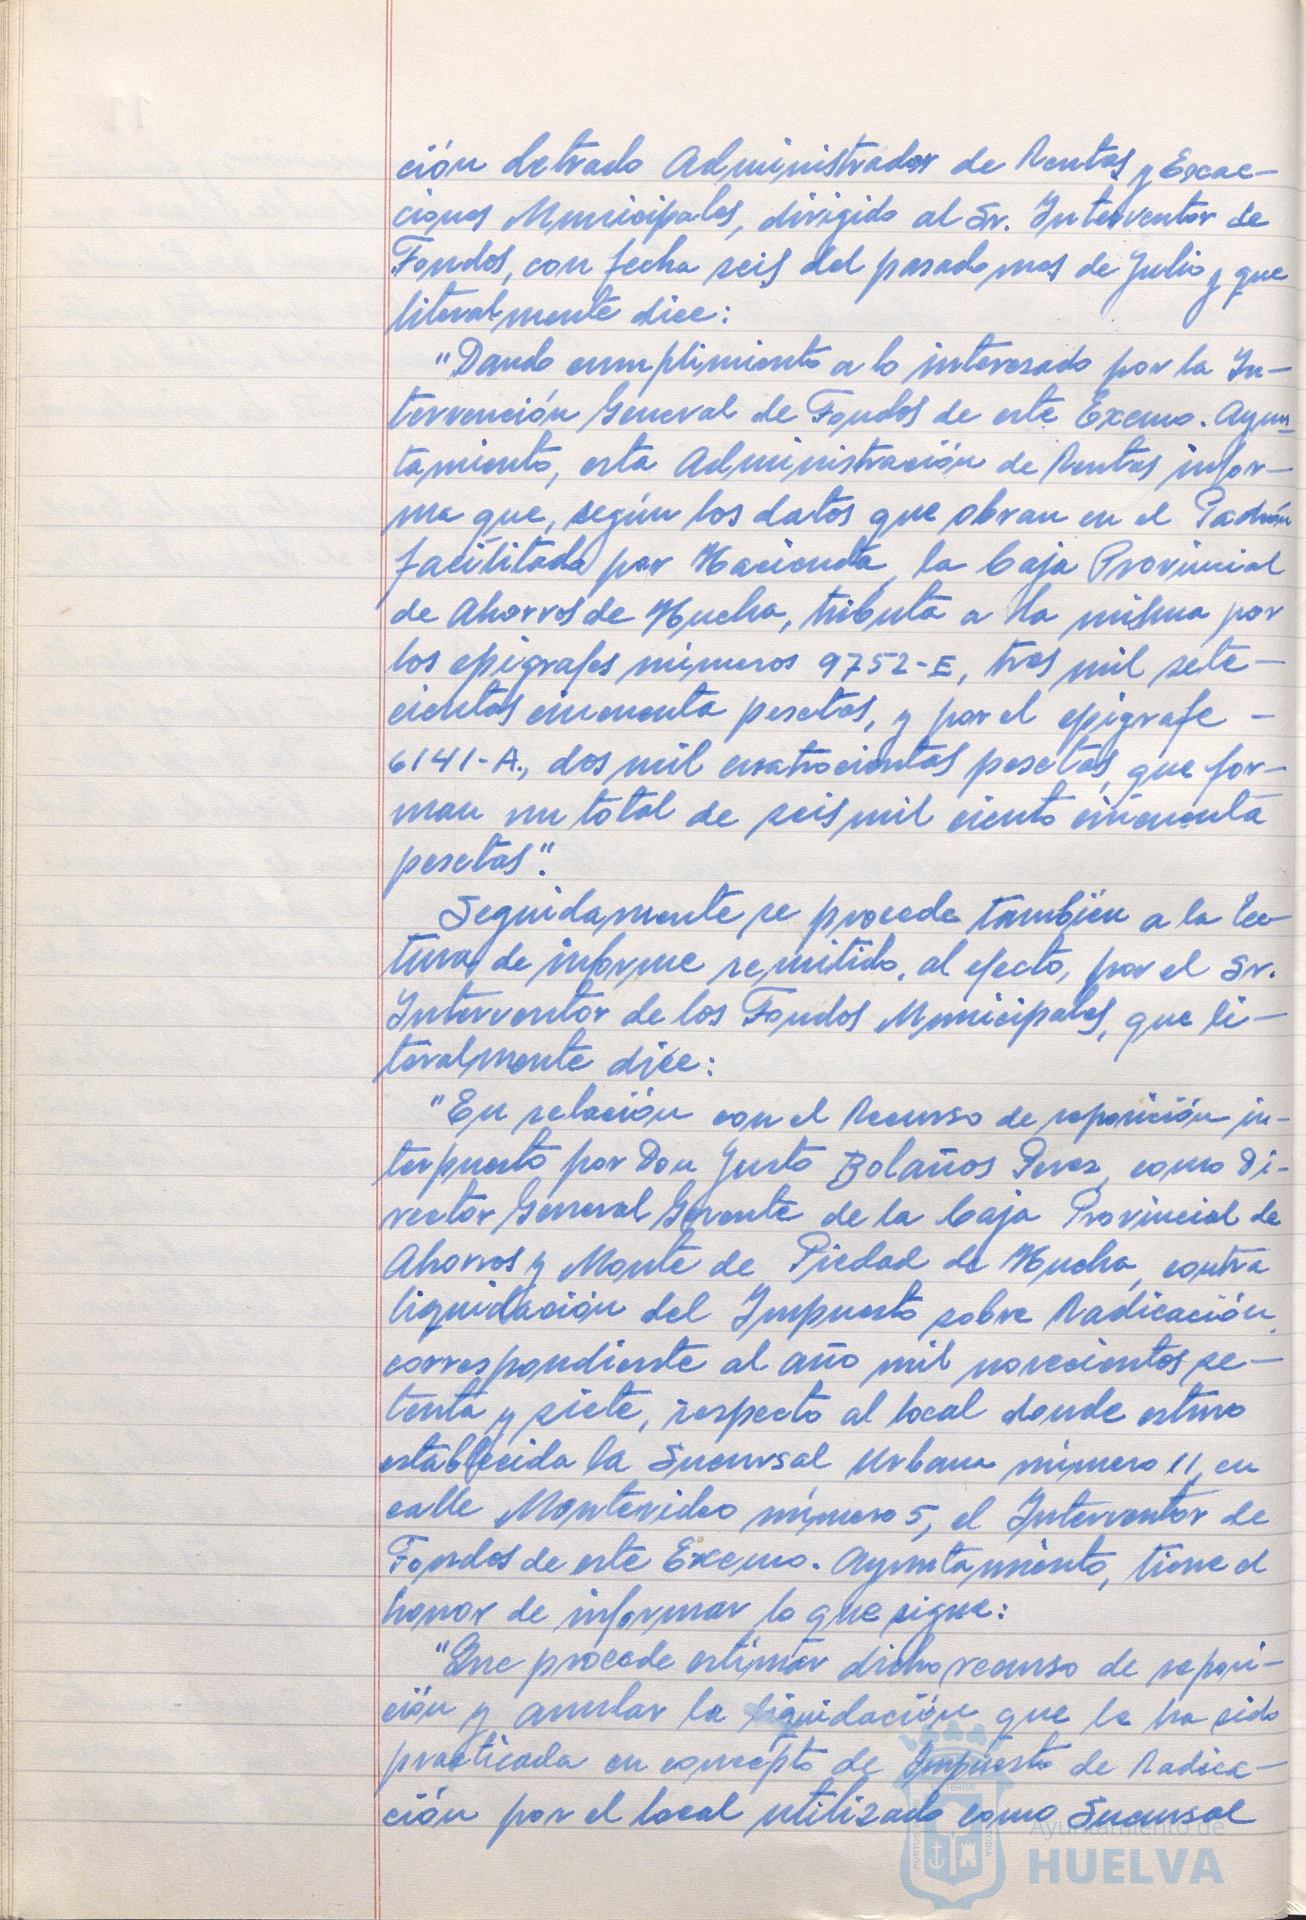 ción Letrado Administrador de Rentas y Exac-
ciones Municipales, dirigido al Sr. Interventor de
Fondos, con fecha seis del pasado mes de Julio y que
literalmente dice:
"Dando cumplimiento a lo interesado por la In-
tervención General de Fondos de este Excmo. Ayun-
tamiento, esta Administración de Rentas infor-
ma que, según los datos que obran en el Padrón
facilitado por Hacienda, la Caja Provincial
de Ahorros de Huelva, tributa a la misma por
los epígrafes números 9752-E, tres mil sete-
cientas cincuenta pesetas, y por el epígrafe -
6141-A., dos mil cuatrocientas pesetas, que for-
man un total de seis mil ciento cincuenta
pesetas".
Seguidamente se procede también a la lec-
tura de informe remitido, al efecto, por el Sr.
Interventor de los Fondos Municipales, que li-
teralmente dice:
"En relación con el Recurso de reposición in-
terpuesto por Don Justo Bolaños Perez, como Di-
rector General Gerente de la Caja Provincial de
Ahorros y Monte de Piedad de Huelva, contra
liquidación del Impuesto sobre Radicación,
correspondiente al año mil novecientos se-
tenta y siete, respecto al local donde estuvo
establecida la Sucursal Urbana número 11, en
calle Montevideo número 5, el Interventor de
Fondos de este Excmo. Ayuntamiento, tiene el
honor de informar lo que sigue:
"Que procede estimar dicho recurso de reposi-
ción y anular la liquidación que le ha sido
practicada en concepto de Impuesto de Radica-
ción por el local utilizado como Sucursal
Ayuntamiento de
HUELVA